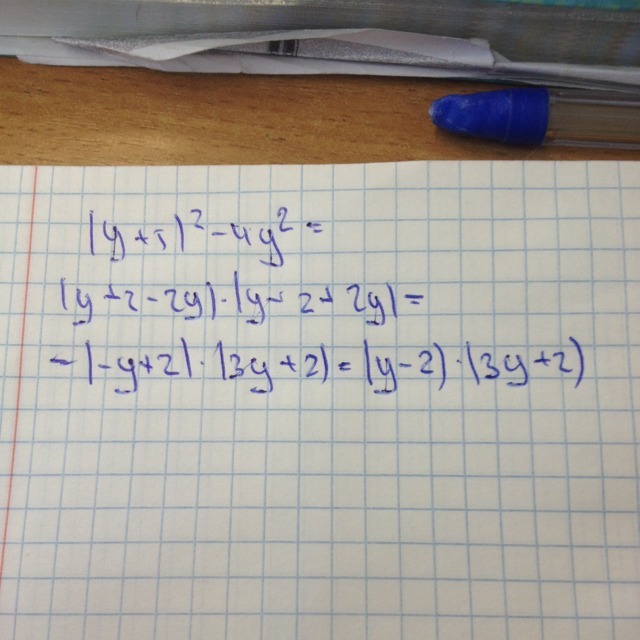 (y+5)²-4y²=
(y+2-2y)·(y+2+2y)=
-(-y+2)·(3y+2)=(y-2)·(3y+2)